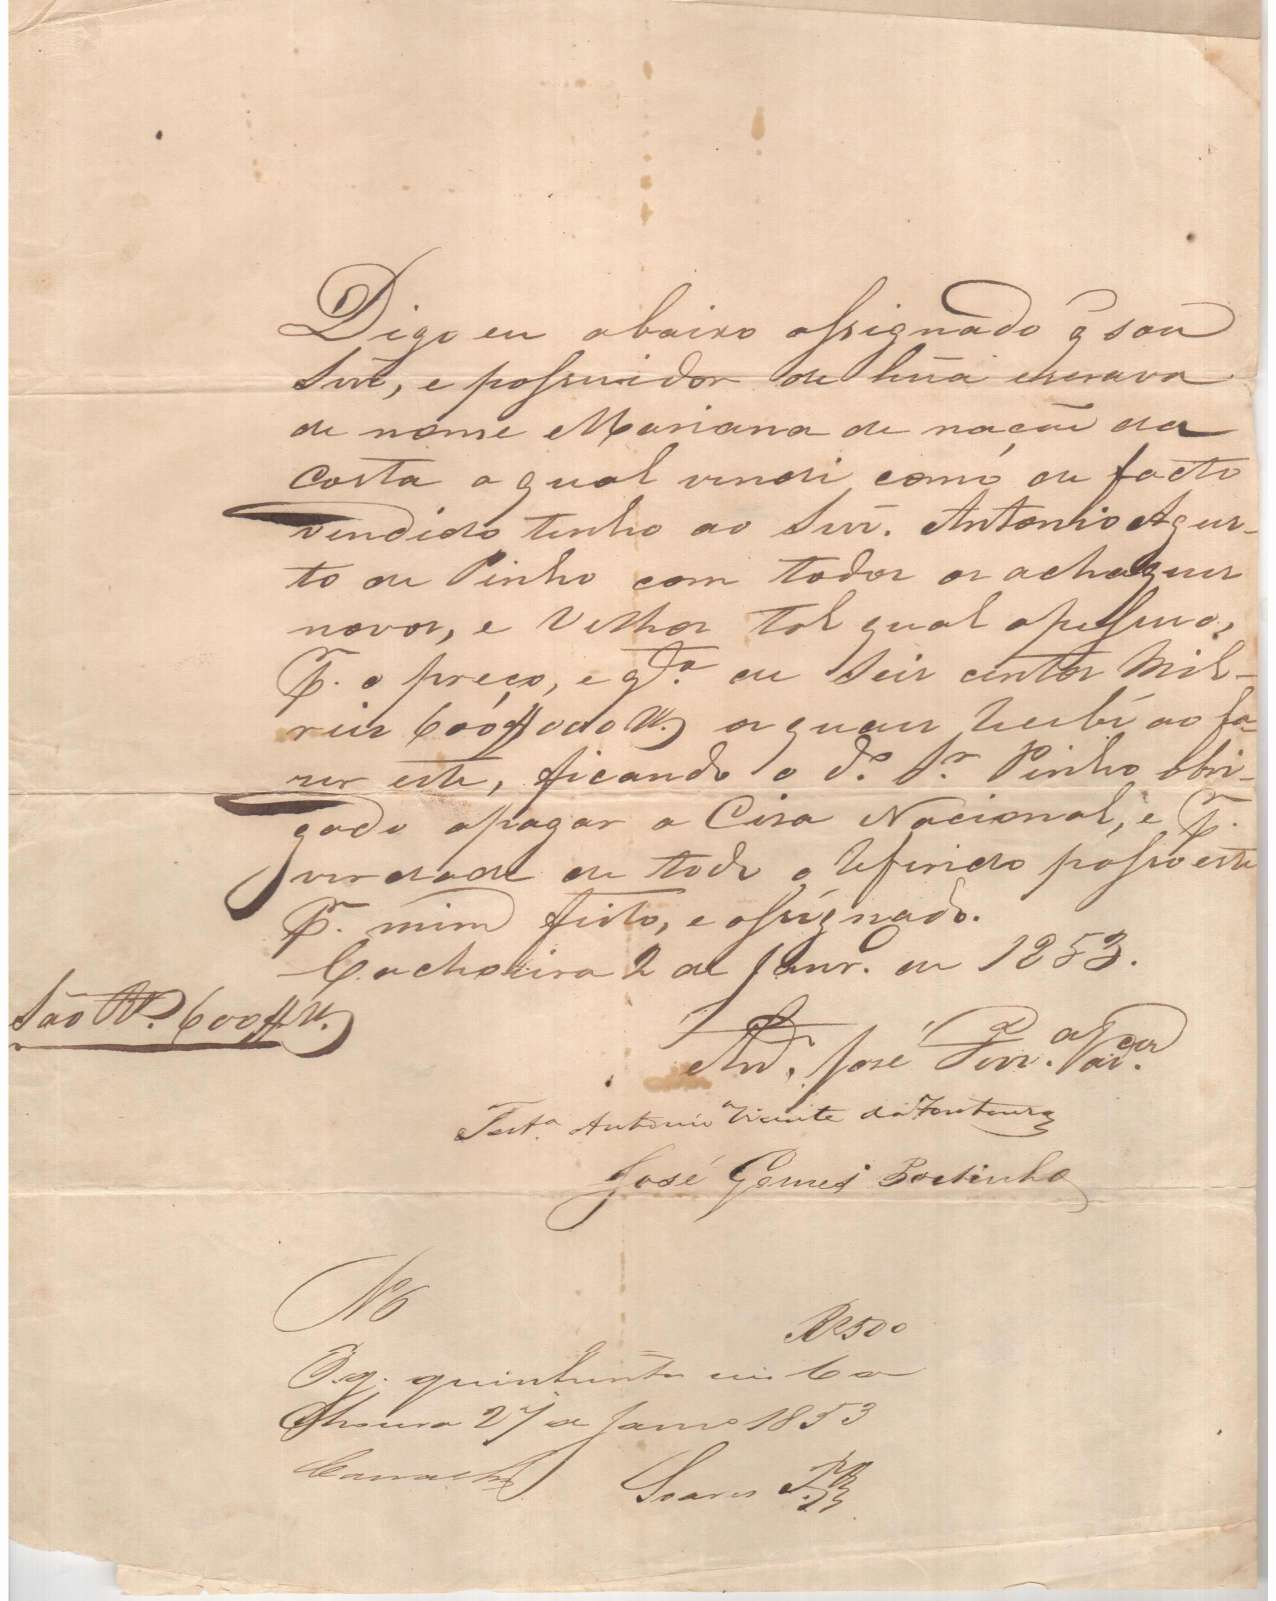 Digo eu abaixo assignado q̃ sou
Snr̃, e possuidor de hũa escrava
de nome Mariana de nação da
costa a qual vendi como de facto
vendido tenho ao Snr. Antonio Agus-
to de Pinho com todos os achaques
novos, e velhos tal qual apossuo,
Pr. o preço, e qta. de seis centos mil-
reis 600$000 Rs. os quais Recebi ao fa-
zer este, ficando o do. Sr. Pinho obri-
gado apagar a Ciza Nacional, e Pr.
verdade de todo o Referido passo este
Pr. mim feito, e assignado.
Cachoeira 2 de Janr. de 1853.
São Rs. 600$Rs.
José Ferra.
Testa. Antonio Vicente da Fontoura
José Gomes Portinho
No 6
Rs 500
Pg. quinhentos reis Ca
choeira 27 de Janro 1853
Camacho Soares